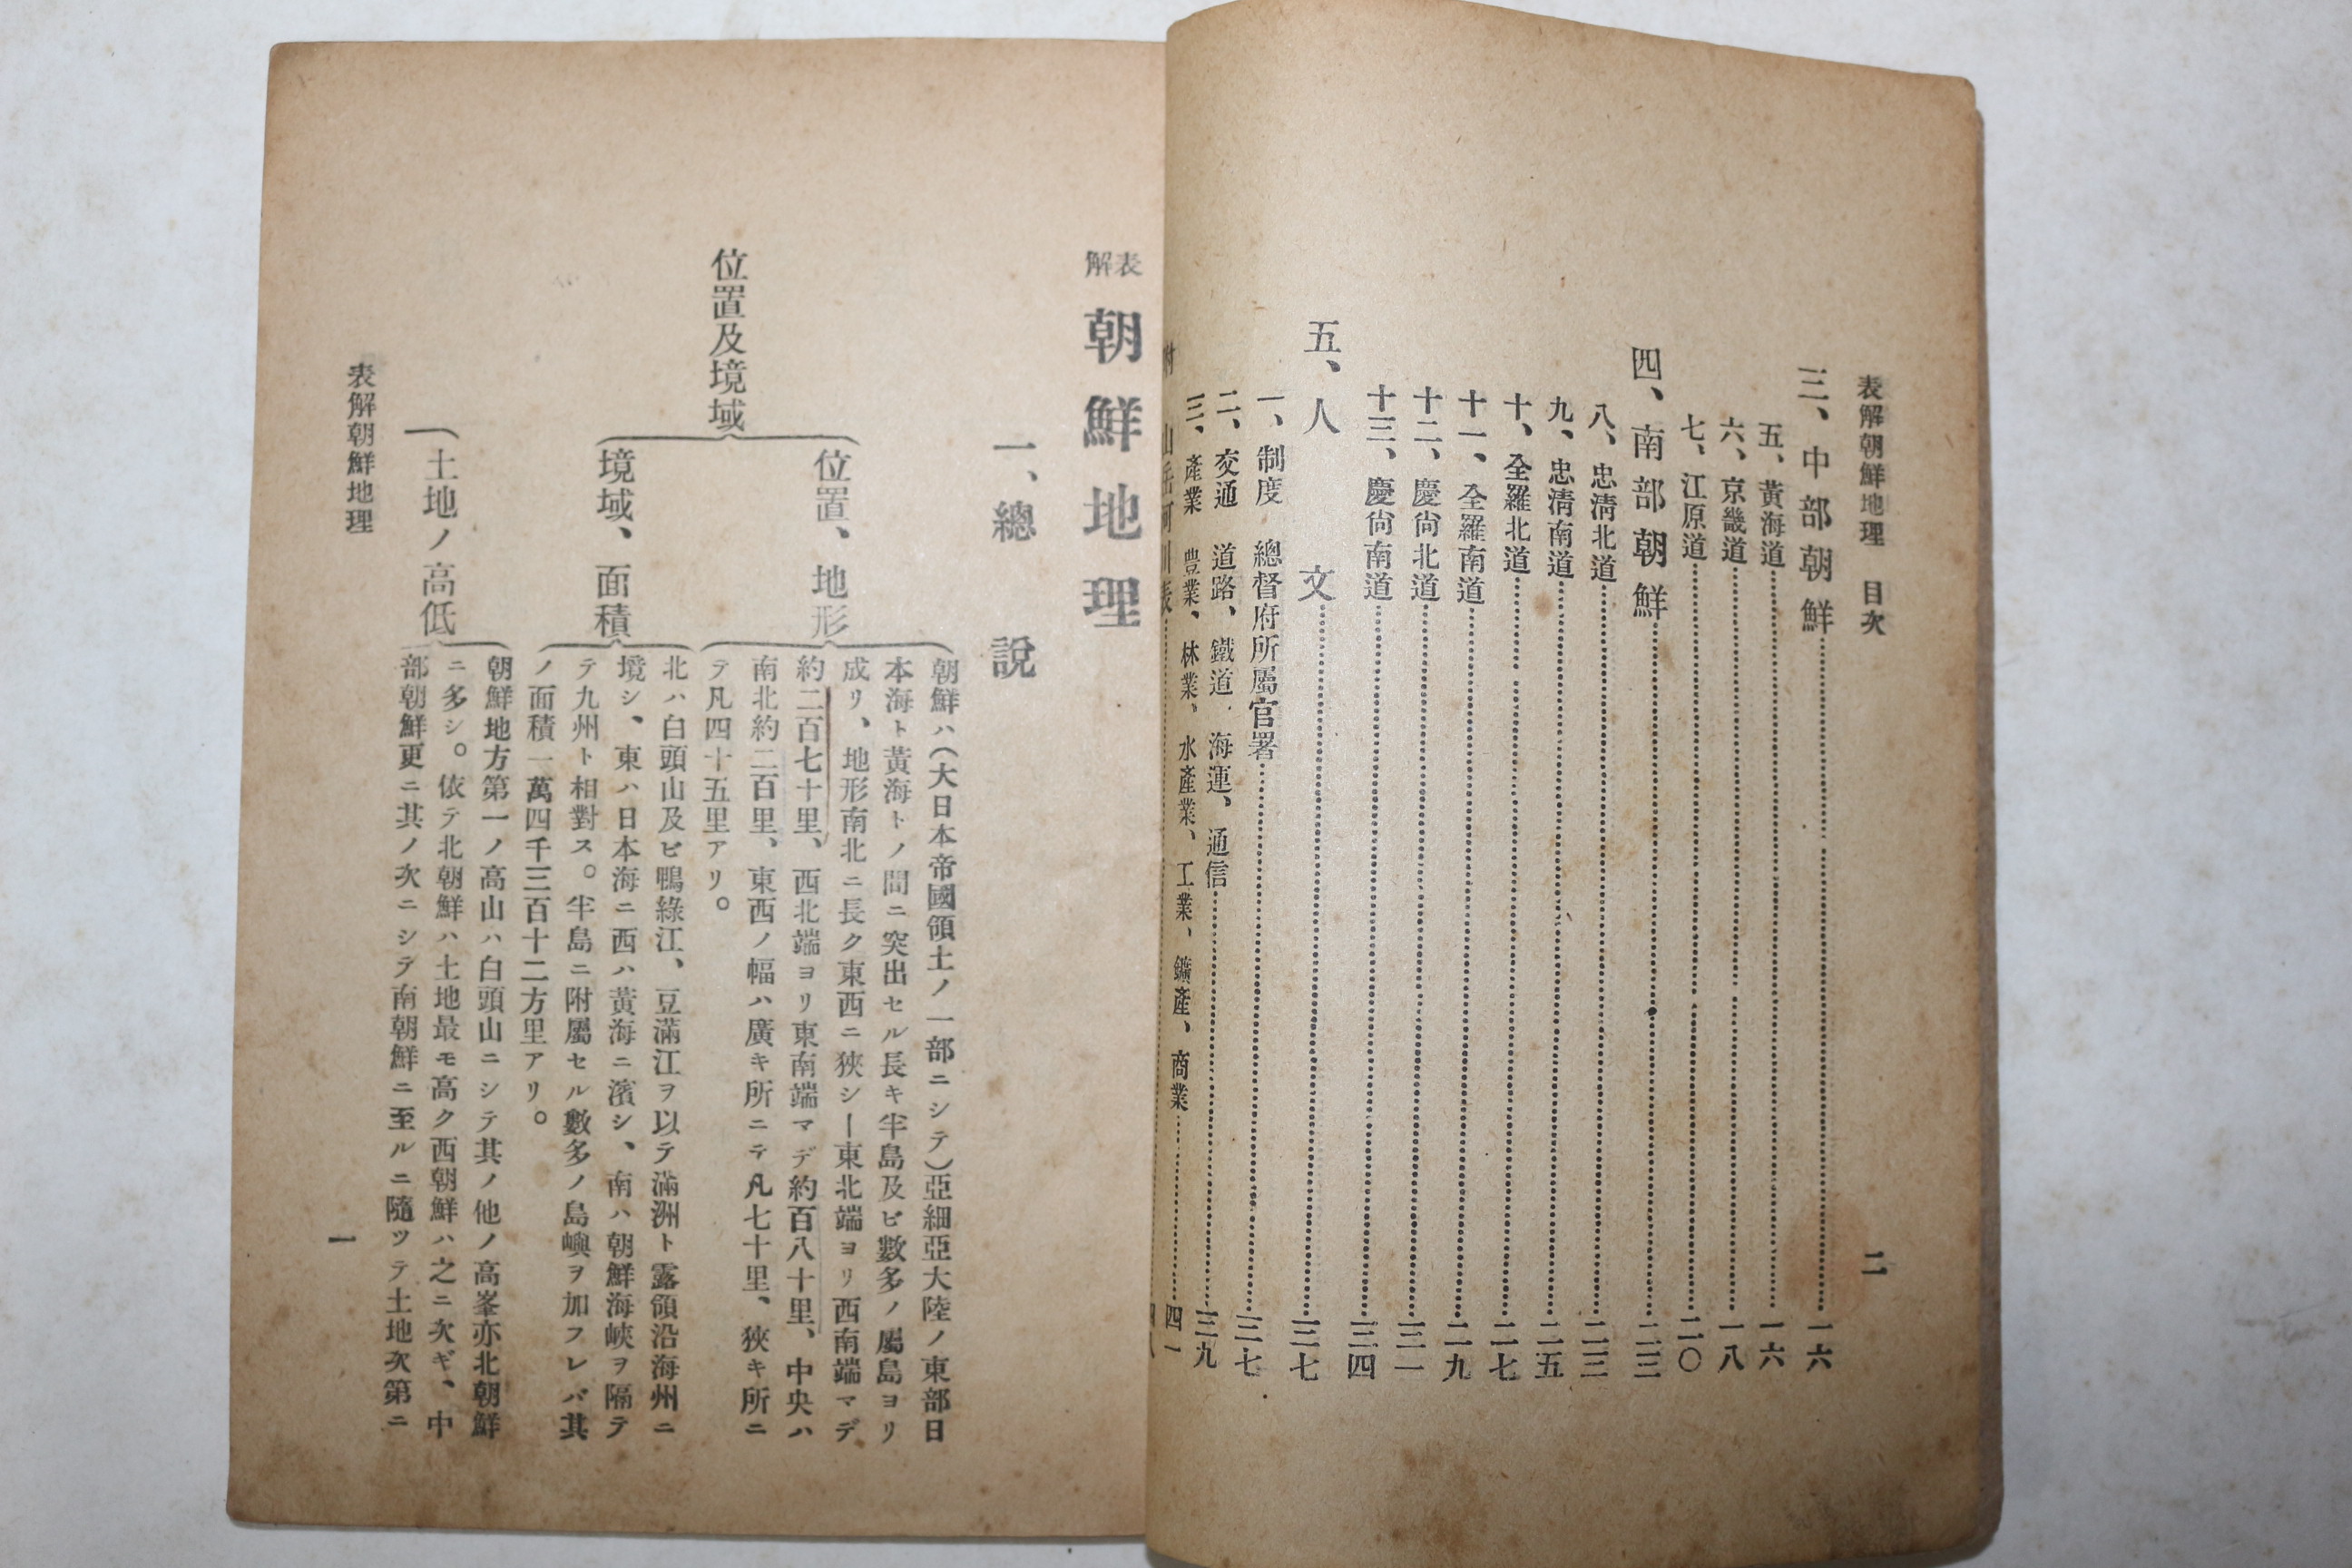 表解朝鮮地理 目次
二
三、中部朝鮮………一六
五、黃海道………一六
六、京畿道………一八
七、江原道………二〇
四、南部朝鮮………二三
八、忠淸北道………二三
九、忠淸南道………二五
十、全羅北道………二七
十一、全羅南道………二九
十二、慶尙北道………三一
十三、慶尙南道………三四
五、人文………三七
一、制度 總督府所屬官署………三七
二、交通 道路、鐵道、海運、通信………三九
三、產業 豊業、林業、水產業、工業、鑛產、商業………四一
附 山岳河川表………四八
表解 朝鮮地理
一、總說
位置及境域
位置、地形
朝鮮ハ(大日本帝國領土ノ一部ニシテ)亞細亞大陸ノ東部日
本海ト黃海トノ間ニ突出セル長キ半島及ビ數多ノ屬島ヨリ
成リ、地形南北ニ長ク東西ニ狹シ―東北端ヨリ西南端マデ
約二百七十里、西北端ヨリ東南端マデ約百八十里、中央ハ
南北約二百里、東西ノ幅ハ廣キ所ニテ凡七十里、狹キ所ニ
テ凡四十五里アリ。
境域、面積
北ハ白頭山及ビ鴨綠江、豆滿江ヲ以テ滿洲ト露領沿海州ニ
境シ、東ハ日本海ニ西ハ黃海ニ濱シ、南ハ朝鮮海峽ヲ隔テ
テ九州ト相對ス。半島ニ附屬セル數多ノ島嶼ヲ加フレバ其
ノ面積一萬四千三百十二方里アリ。
土地ノ高低
朝鮮地方第一ノ高山ハ白頭山ニシテ其ノ他ノ高峯亦北朝鮮
ニ多シ。依テ北朝鮮ハ土地最モ高ク西朝鮮ハ之ニ次ギ、中
部朝鮮更ニ其ノ次ニシデ南朝鮮ニ至ルニ隨ツテ土地次第ニ
表解朝鮮地理
一